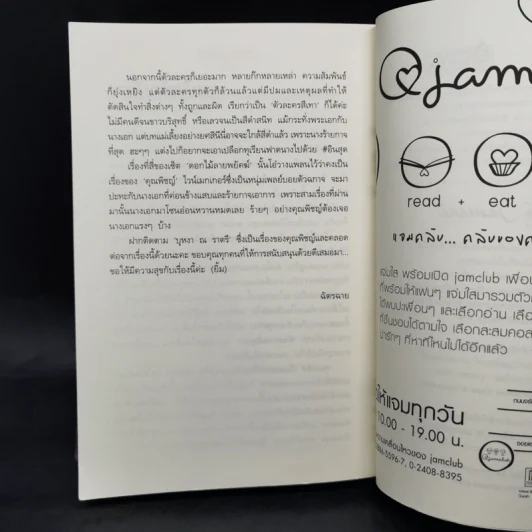 นอกจากนี้ตัวละครก็เยอะมาก หลายก๊กหลายเหล่า ความสัมพันธ์
ก็ยุ่งเหยิง แต่ตัวละครทุกตัวก็ล้วนแล้วแต่มีปมและเหตุผลที่ทำให้
ตัดสินใจทำสิ่งต่างๆ ทั้งถูกและผิด เรียกว่าเป็น 'ตัวละครสีเทา' ก็ได้ค่ะ
ไม่มีคนดีจนขาวบริสุทธิ์ หรือเลวจนเป็นสีดำสนิท แม้กระทั่งพระเอกกับ
นางเอก แต่บทแม่เลี้ยงอย่างยศสินีนี่อาจจะใกล้สีดำแล้ว เพราะนางร้ายกาจ
ที่สุด ฮะๆๆ แต่งไปก็อยากจะเอาเปลือกทุเรียนฟาดนางไปด้วย #อินสุด
เรื่องที่สี่ของเซ็ต 'ดอกไม้ลายพยัคฆ์' นั้นโอ๋วางแพลนไว้ว่าคงเป็น
เรื่องของ 'คุณพิชญ์' ไวน์เมกเกอร์ซึ่งเป็นหนุ่มเพลย์บอยตัวฉกาจ จะมา
ปะทะกับนางเอกที่ค่อนข้างแสบและร้ายกาจเอาการ เพราะสามเรื่องที่ผ่าน
มานั้นนางเอกมาโซนอ่อนหวานหมดเลย ร้ายๆ อย่างคุณพิชญ์ต้องเจอ
นางเอกแรงๆ บ้าง
ฝากติดตาม 'บุหงา ณ ราตรี' ซึ่งเป็นเรื่องของคุณพิชญ์และคลอด
ต่อจากเรื่องนี้ด้วยนะคะ ขอบคุณทุกคนที่ให้การสนับสนุนด้วยดีเสมอมา...
ขอให้มีความสุขกับเรื่องนี้ค่ะ (ยิ้ม)
ฉัตรฉาย
@jam
read + eat
แจมคลับ... คลับของค
แจ่มใส พร้อมเปิด jamclub เพื่อน
ที่พร้อมให้แฟนๆ แจ่มใสมารวมตัว
ได้พบปะเพื่อนๆ และเลือกอ่าน เลือ
ที่ชื่นชอบได้ตามใจ เลือกสะสมคอล
น่ารักๆ ที่หาที่ไหนไม่ได้อีกแล้ว
ให้แจมทุกวัน
10.00 - 19.00 น.
ความเคลื่อนไหวของ jamclub
5596-7, 0-2408-8395